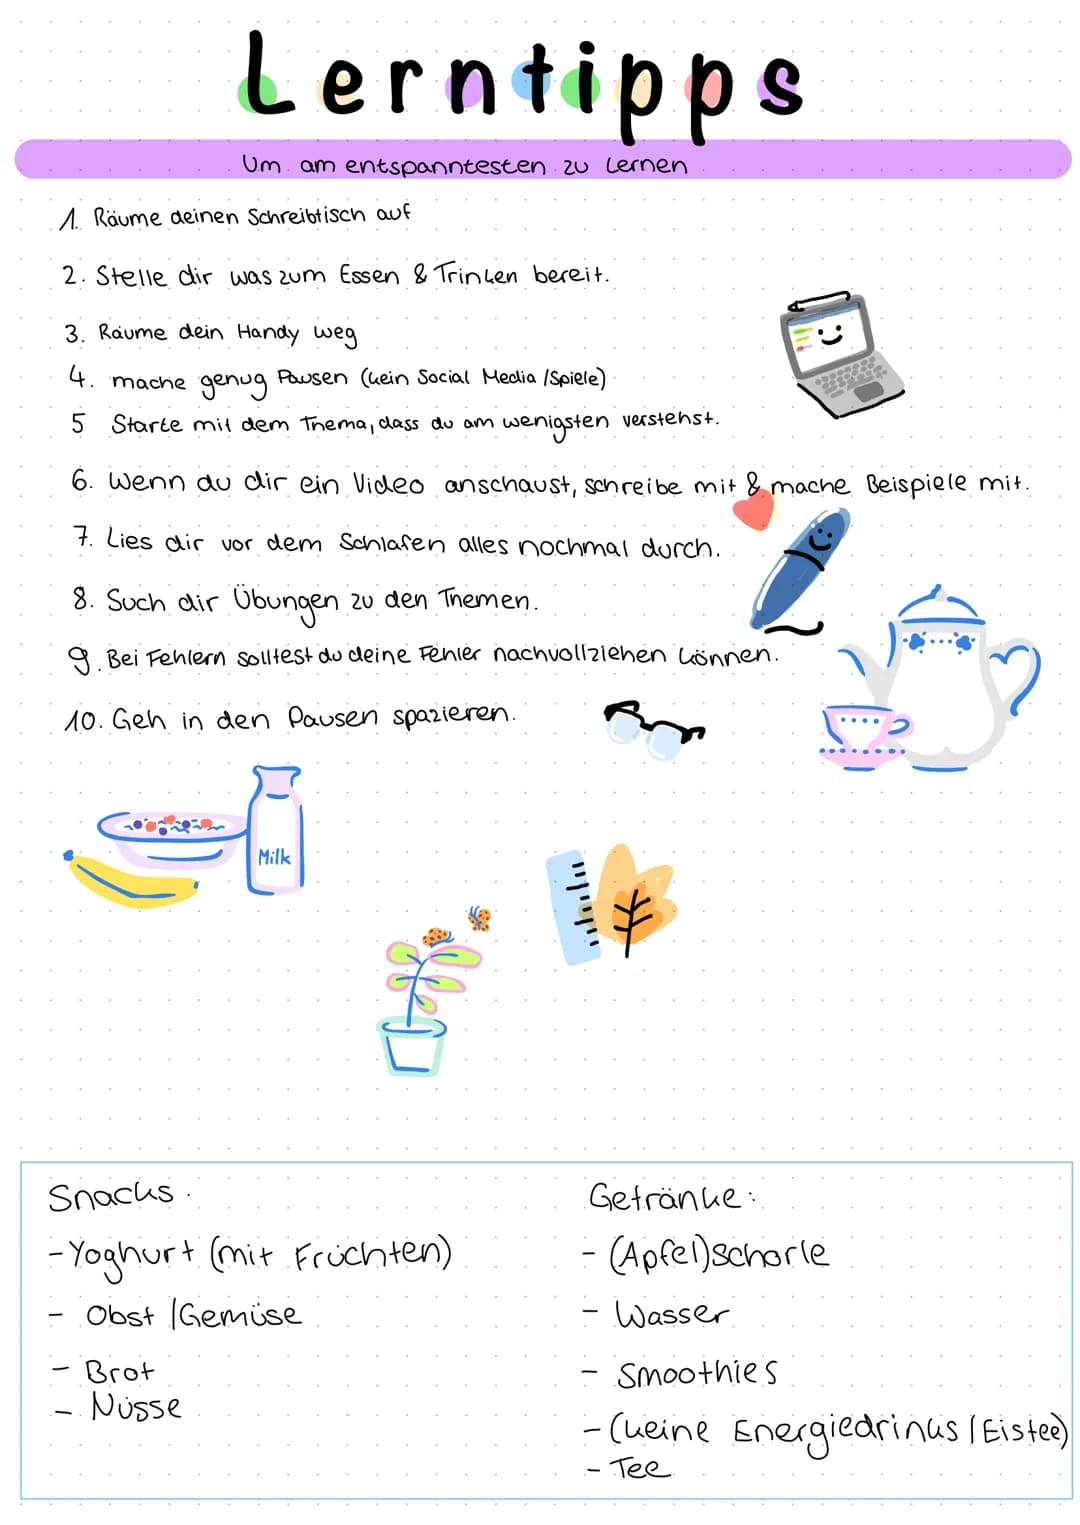 Lerntipps
Um am entspanntesten zu lernen
1. Räume deinen Schreibtisch auf
2. Stelle dir was zum Essen & Trinken bereit.
3. Räume dein Handy weg
4. mache genug Pausen (kein Social Media /Spiele)
5 Starte mit dem Thema, dass du am wenigsten verstehst.
6. Wenn du dir ein Video anschaust, schreibe mit & mache Beispiele mit.
7. Lies dir vor dem Schlafen alles nochmal durch.
8. Such dir Übungen zu den Themen.
9. Bei Fehlern solltest du deine Fehler nachvollziehen können.
10. Geh in den Pausen spazieren.
Milk
Snacks:
- Yoghurt (mit Früchten)
- Obst /Gemüse
- Brot
- Nüsse
Getränke:
- (Apfel)schorle
- Wasser
- Smoothies
- (keine Energiedrinks / Eistee)
- Tee